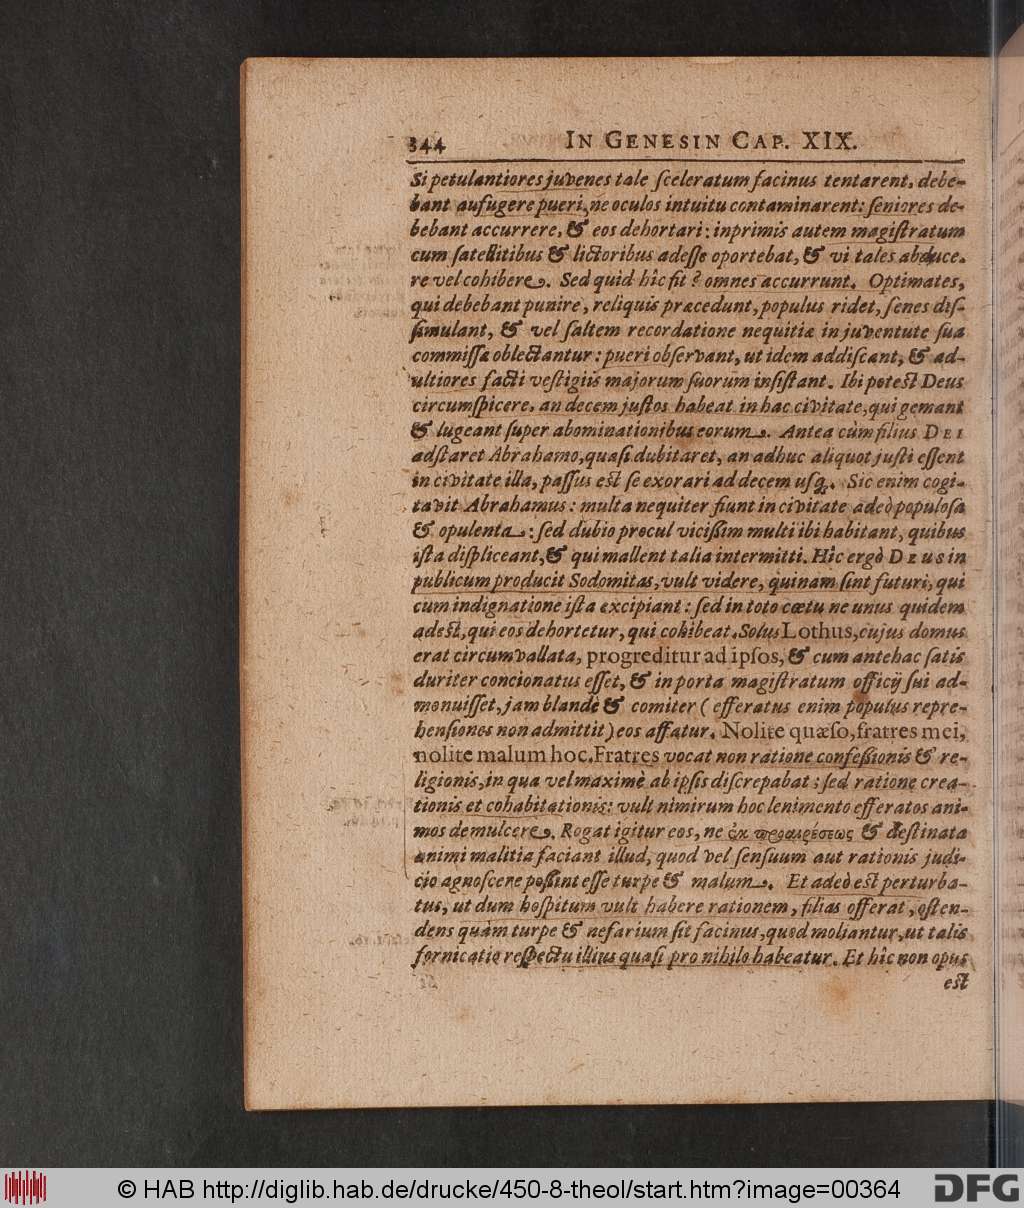 344 IN GENESIN CAP. XIX.
Si petulantiores juvenes tale ſceleratum facinus tentarent, debe-
bant aufugere pueri, ne oculos intuitu contaminarent: ſeniores de-
bebant accurrere, & eos dehortari: inprimis autem magiſtratum
cum ſatellitibus & lictoribus adeſſe oportebat, & vi tales abduce-
re vel cohibere. Sed quid hîc fit? omnes accurrunt. Optimates,
qui debebant punire, reliquis præcedunt, populus ridet, ſenes diſ-
ſimulant, & vel ſaltem recordatione nequitiæ in juventute ſua
commiſſæ oblectantur: pueri obſervant, ut idem addiſcant, & ad-
ultiores facti veſtigiis majorum ſuorum inſiſtant. Ibi poteſt Deus
circumſpicere, an decem juſtos habeat in hac civitate, qui gemant
& lugeant ſuper abominationibus eorum. Antea cùm filius DEI
adſtaret Abrahamo, quaſi dubitaret, an adhuc aliquot juſti eſſent
in civitate illa, paſſus eſt ſe exorari ad decem uſq;. Sic enim cogi-
tavit Abrahamus: multa nequiter fiunt in civitate adeò populoſa
& opulenta: ſed dubio procul viciſſim multi ibi habitant, quibus
iſta diſpliceant, & qui mallent talia intermitti. Hîc ergò DEUS in
publicum producit Sodomitas, vult videre, quinam ſint futuri, qui
cum indignatione iſta excipiant: ſed in toto cœtu ne unus quidem
adeſt, qui eos dehortetur, qui cohibeat. Solus Lothus, cujus domus
erat circumvallata, progreditur ad ipſos, & cum antehac ſatis
duriter concionatus eſſet, & in porta magiſtratum officij ſui ad-
monuiſſet, jam blandè & comiter (efferatus enim populus repre-
henſiones non admittit) eos affatur. Nolite quæſo, fratres mei,
nolite malum hoc. Fratres vocat non ratione confeſſionis & re-
ligionis, in qua vel maximè ab ipſis diſcrepabat: ſed ratione crea-
tionis et cohabitationis: vult nimirum hoc lenimento efferatos ani-
mos demulcere. Rogat igitur eos, ne ἐκ προαιρέσεως & deſtinata
animi malitia faciant illud, quod vel ſenſuum aut rationis judi-
cio agnoſcere poſſint eſſe turpe & malum. Et adeò eſt perturba-
tus, ut dum hoſpitum vult habere rationem, filias offerat, oſten-
dens quàm turpe & nefarium ſit facinus, quod moliantur, ut talis
fornicatio reſpectu illius quaſi pro nihilo habeatur. Et hîc non opus
eſt
© HAB http://diglib.hab.de/drucke/450-8-theol/start.htm?image=00364
DFG